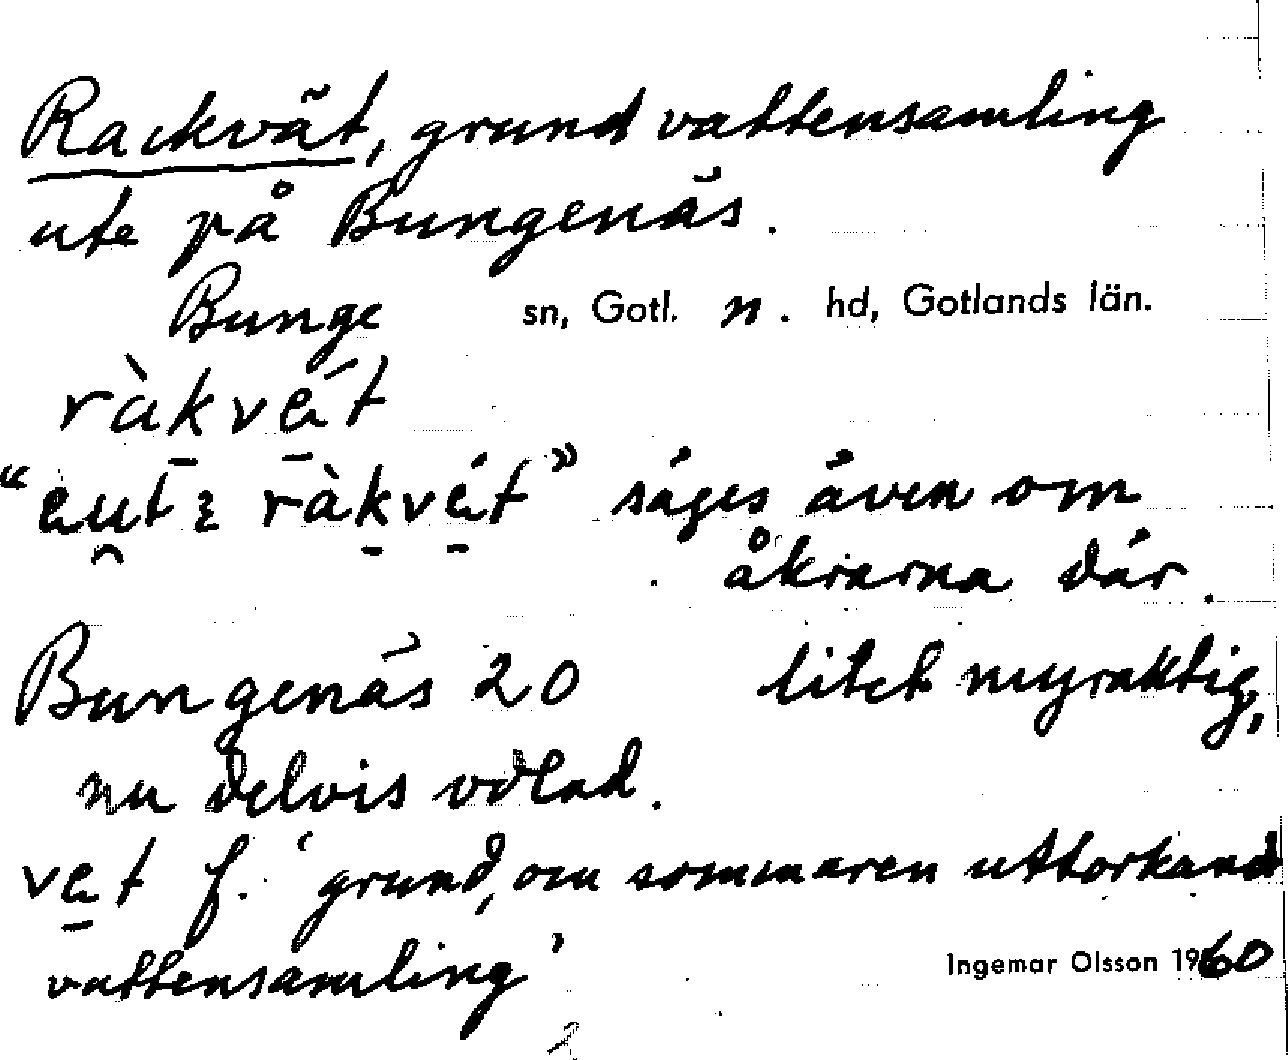 Rackvät, grund vattensamling
ute på Bungenäs.
Bunge sn, Gotl. n. hd, Gotlands län.
ràkvét
“eut ràkvét” säges även om
åkrarna där.
Bungenäs 20 litet myraktig,
nu delvis odlad.
vet f. ‘grund, om sommaren uttorkand
vattensamling’
Ingemar Olsson 1960
2